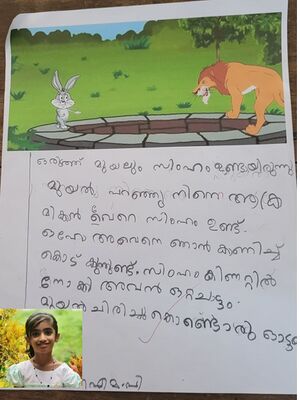 ഒരിടത്ത് മുയലും സിംഹം ഉണ്ടായിരുന്നു
മുയൽ പറഞ്ഞു നിന്നെ ആക്ര
മിക്കാൻ വേറെ സിംഹം ഉണ്ട്.
ഓഹോ അവനെ ഞാൻ കാണിച്ച്
കൊട് ക്കുന്നുണ്ട്. സിംഹം കിണറ്റിൽ
നോക്കി അവൻ ഒറ്റചാട്ടം.
മുയൽ ചിരിച്ചു കൊണ്ടൊരു ഓട്ടം